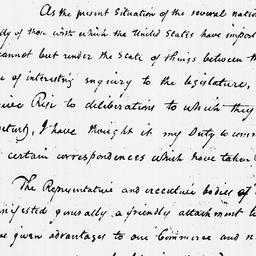 As the present situation of the several nati
ly of those with which the United States have import
cannot but render the State of things between th
of interesting inquiry to the legislature,
ive Rise to deliberations to which they
I have thought it my Duty to comm
certain correspondences which have taken
The Representative and executive bodies of
nifested generally a friendly attachment to
given advantages to our Commerce and n